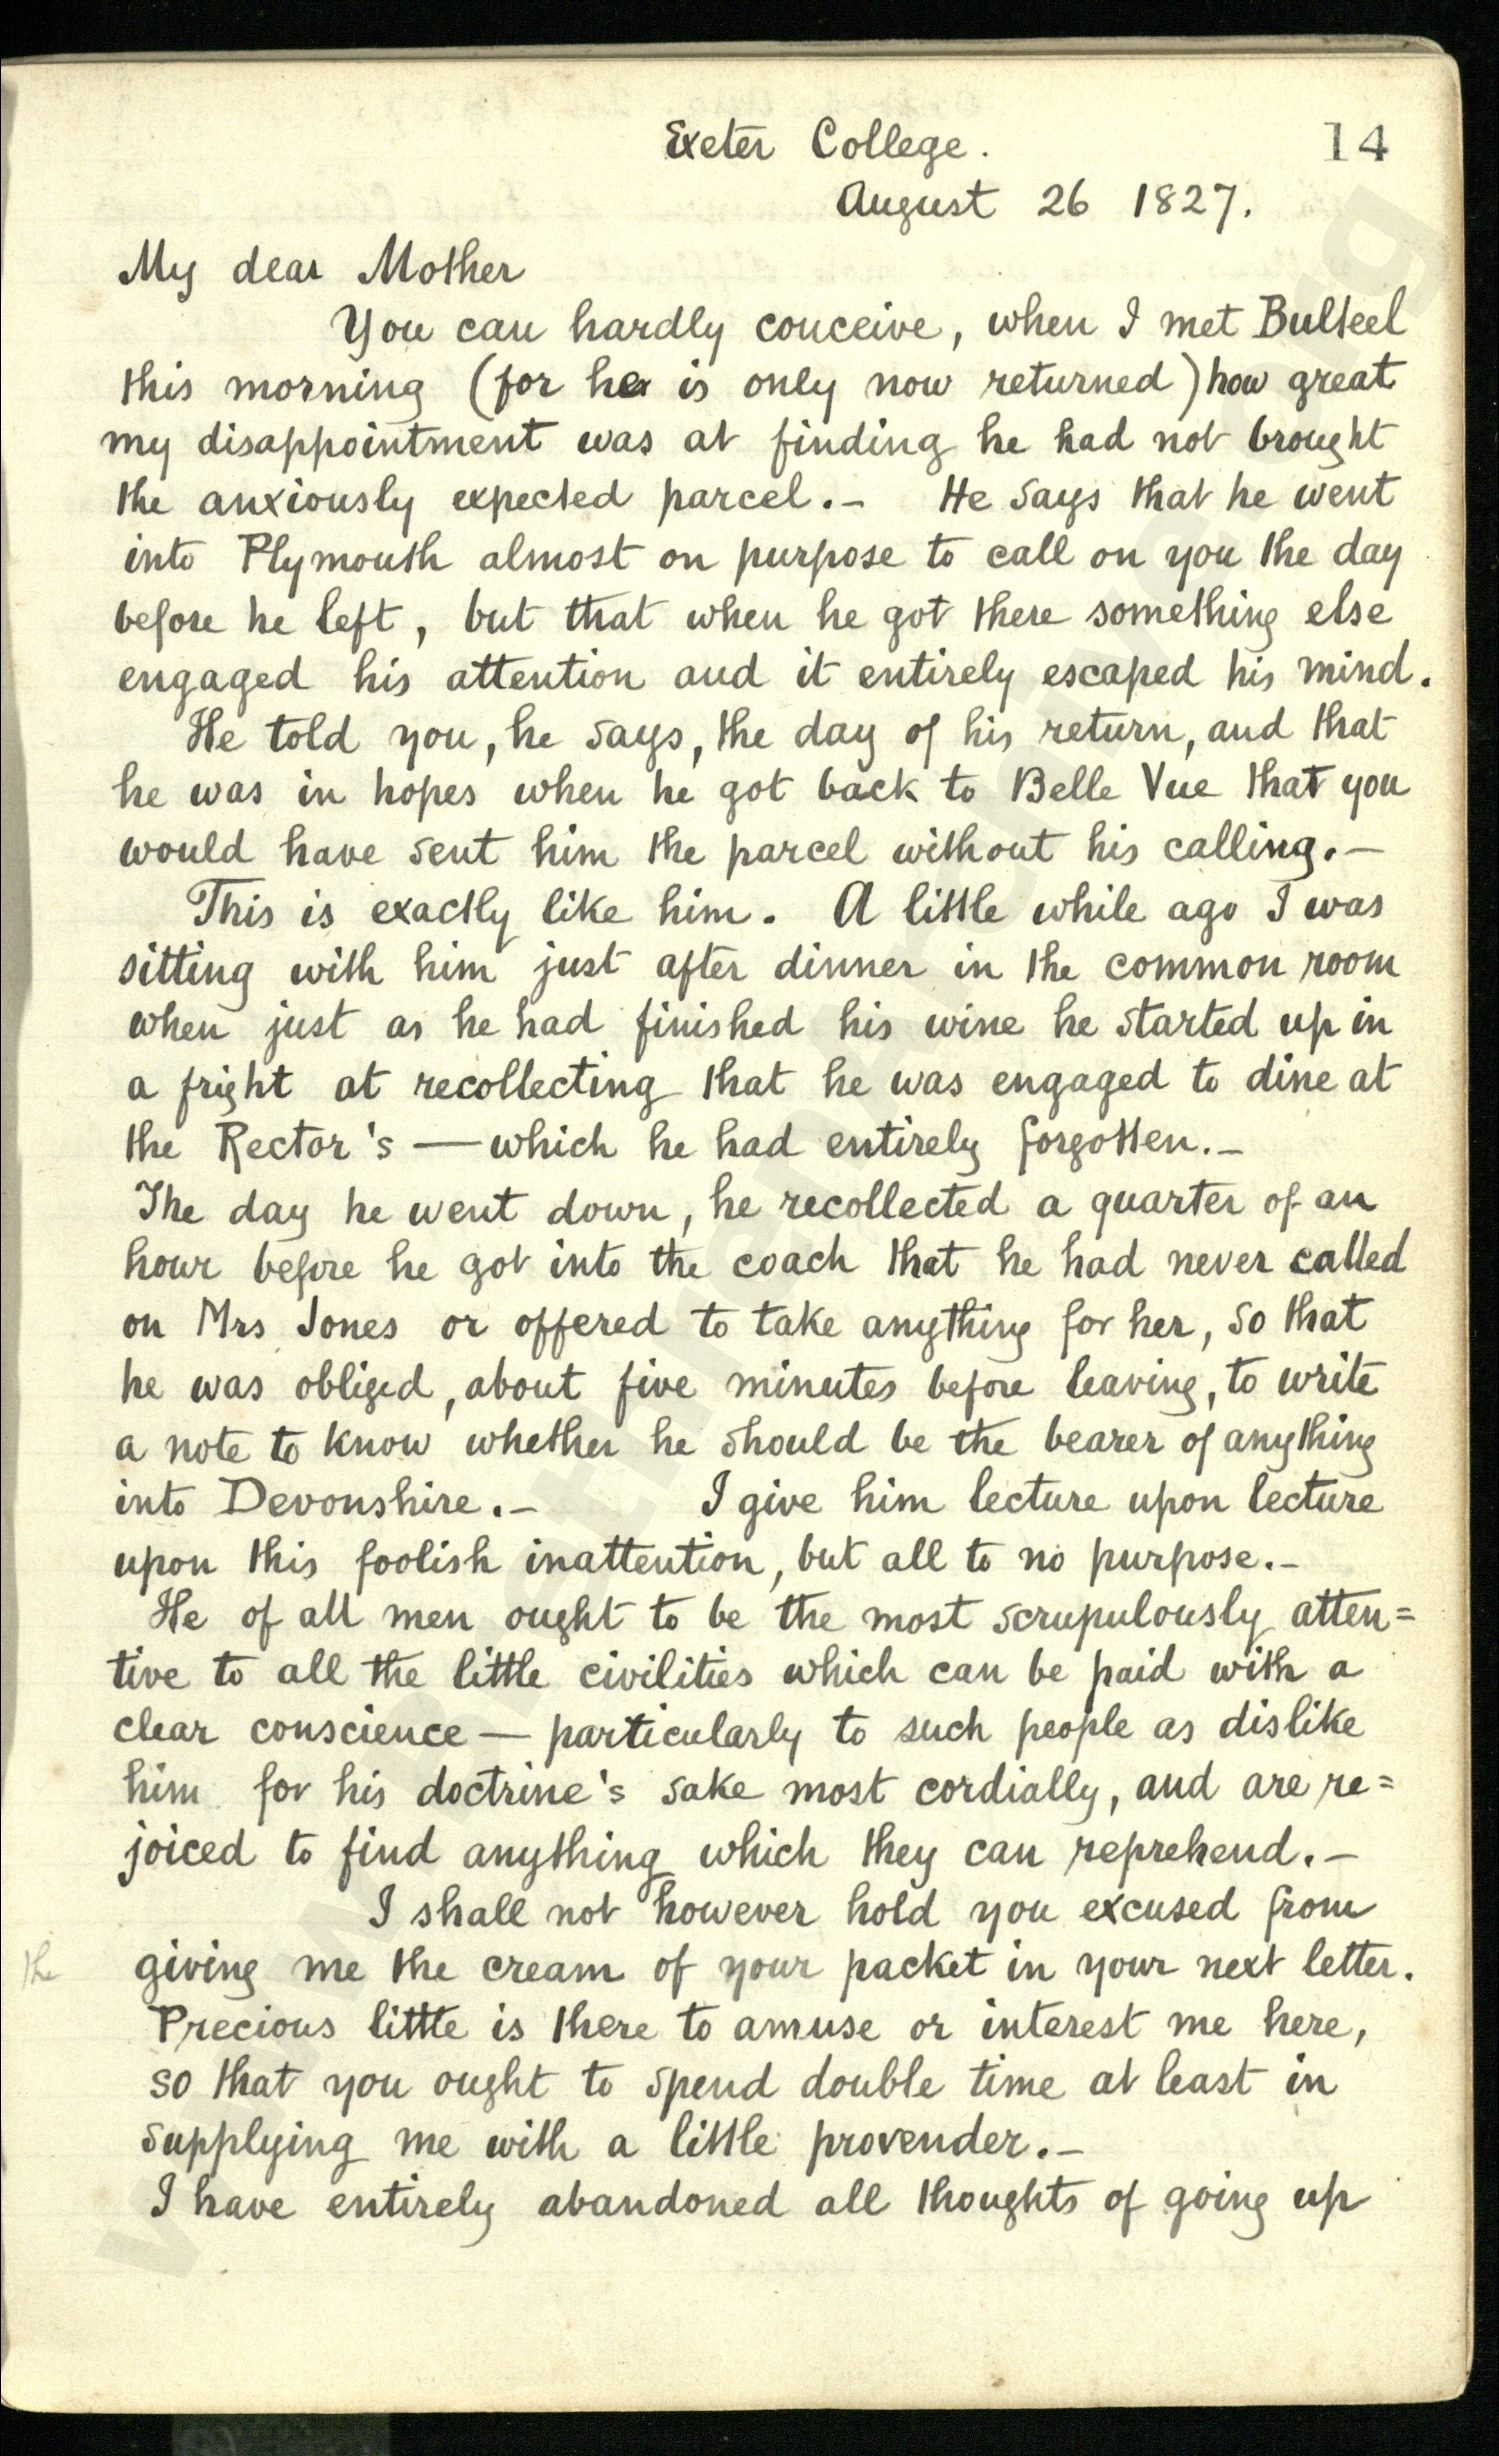 Exeter College.
14
August 26 1827.
My dear Mother
You can hardly conceive, when I met Bulteel
this morning (for he is only now returned) how great
my disappointment was at finding he had not brought
the anxiously expected parcel.– He says that he went
into Plymouth almost on purpose to call on you the day
before he left, but that when he got there something else
engaged his attention and it entirely escaped his mind.
He told you, he says, the day of his return, and that
he was in hopes when he got back to Belle Vue that you
would have sent him the parcel without his calling.–
This is exactly like him. A little while ago I was
sitting with him just after dinner in the common room
when just as he had finished his wine he started up in
a fright at recollecting that he was engaged to dine at
the Rector's — which he had entirely forgotten.–
The day he went down, he recollected a quarter of an
hour before he got into the coach that he had never called
on Mrs Jones or offered to take anything for her, so that
he was obliged, about five minutes before leaving, to write
a note to know whether he should be the bearer of anything
into Devonshire.– I give him lecture upon lecture
upon this foolish inattention, but all to no purpose.–
He of all men ought to be the most scrupulously atten=
tive to all the little civilities which can be paid with a
clear conscience — particularly to such people as dislike
him for his doctrine's sake most cordially, and are re=
joiced to find anything which they can reprehend.–
I shall not however hold you excused from
the
giving me the cream of your packet in your next letter.
Precious little is there to amuse or interest me here,
so that you ought to spend double time at least in
supplying me with a little provender.–
I have entirely abandoned all thoughts of going up